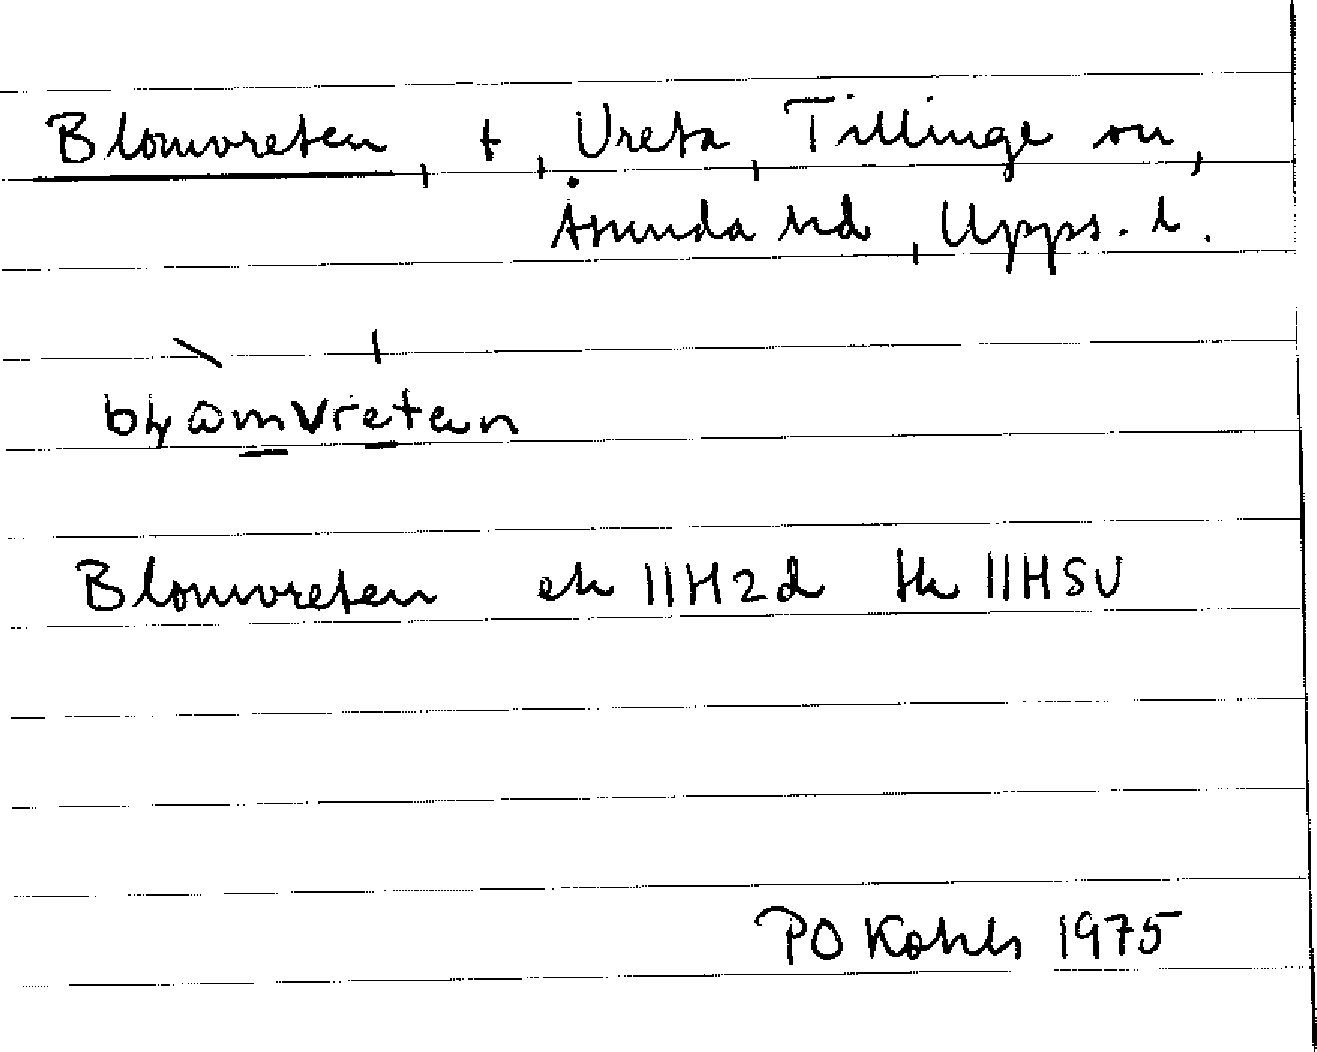 Blomvreten, t, Vreta, Tillinge sn,
Åsunda hd, Upps. l.
blɷmvretɛn
Blomvreten ek 11H2d tk 11HSV
PO Kohls 1975